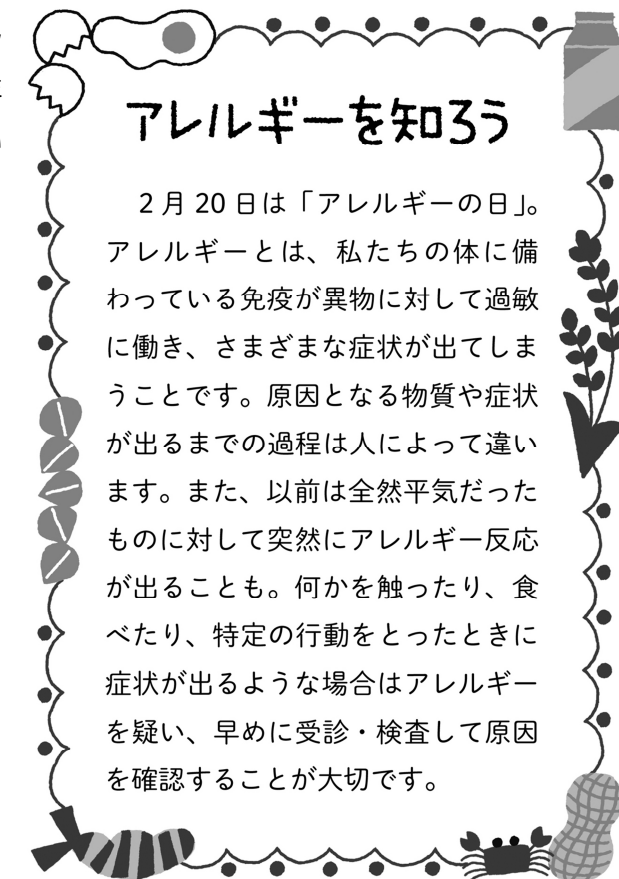 アレルギーを知ろう
2月20日は「アレルギーの日」。
アレルギーとは、私たちの体に備
わっている免疫が異物に対して過敏
に働き、さまざまな症状が出てしま
うことです。原因となる物質や症状
が出るまでの過程は人によって違い
ます。また、以前は全然平気だった
ものに対して突然にアレルギー反応
が出ることも。何かを触ったり、食
べたり、特定の行動をとったときに
症状が出るような場合はアレルギー
を疑い、早めに受診・検査して原因
を確認することが大切です。